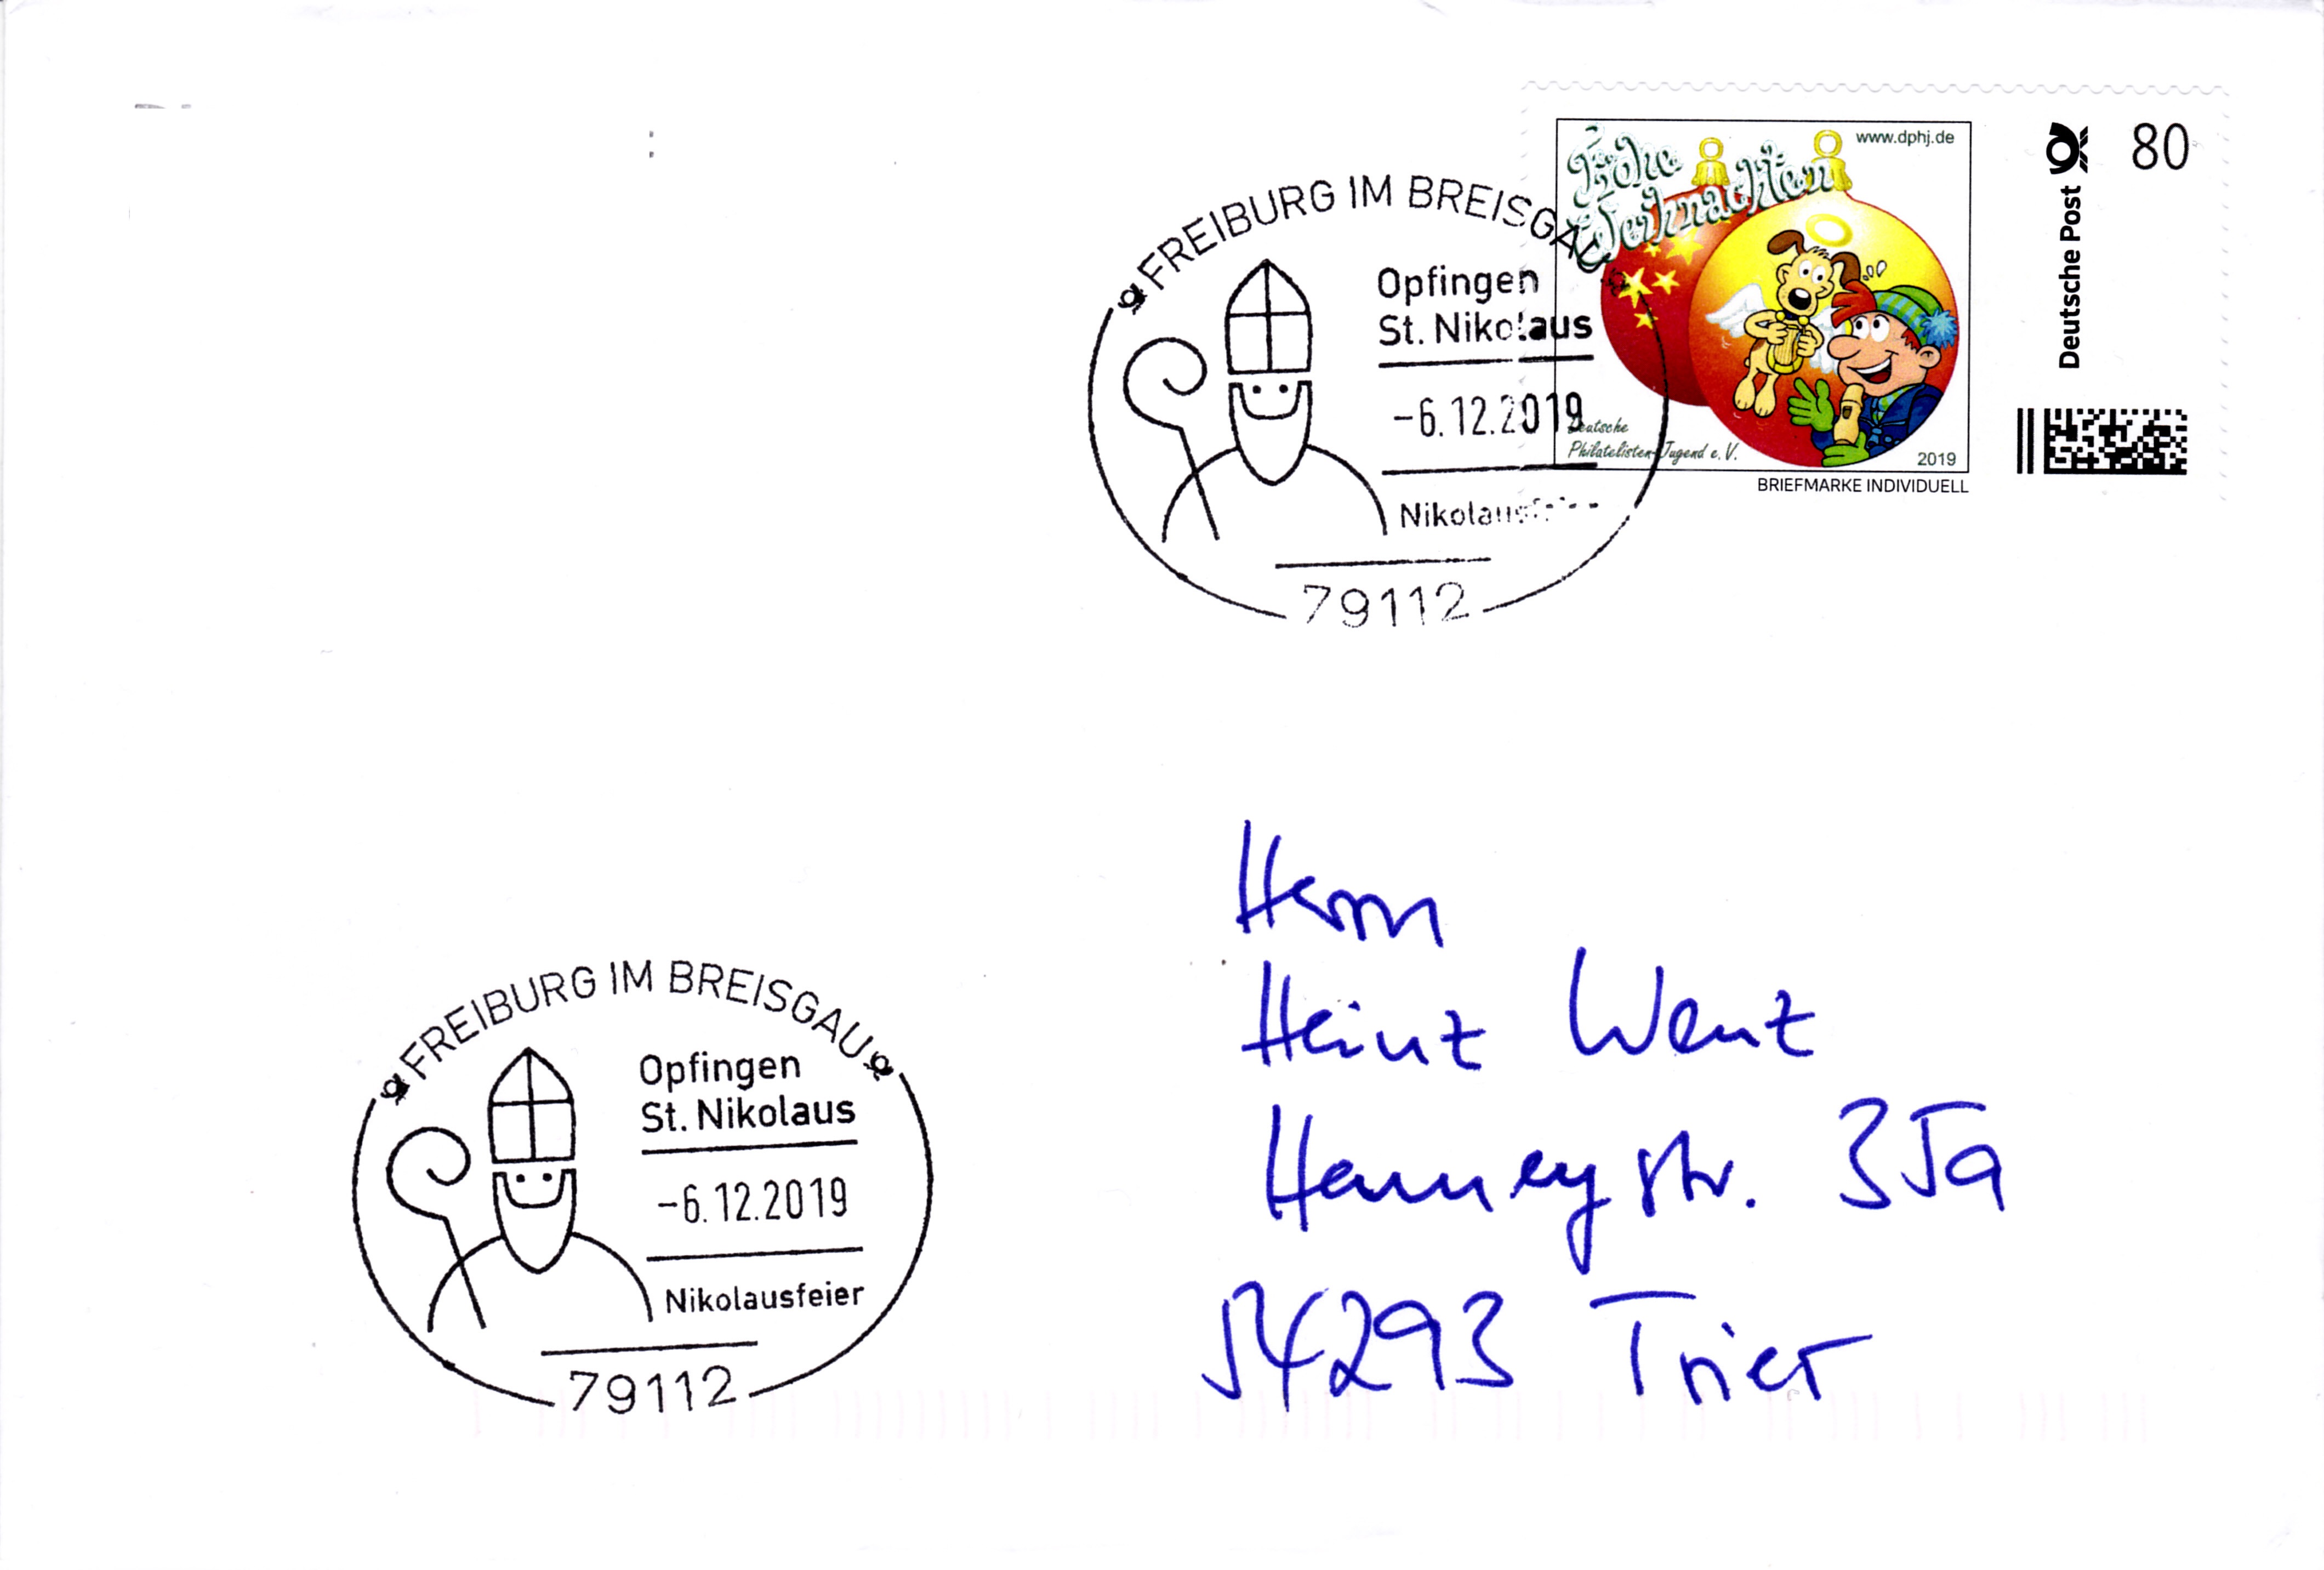 FREIBURG IM BREISGAU
Opfingen
St. Nikolaus
-6.12.2019
79112
Frohe
Weihnachten
www.dphj.de
Deutsche
Philatelisten-Jugend e.V.
2019
BRIEFMARKE INDIVIDUELL
Deutsche Post
80
Herrn
Heinz Wenz
35a
54293 Trier
FREIBURG IM BREISGAU
Opfingen
St. Nikolaus
-6.12.2019
Nikolausfeier
79112